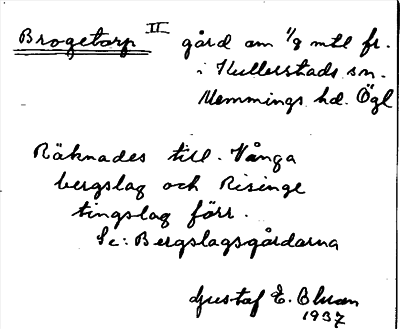 Brogetorp II gård om 1/8 mtl fr.
i Kullerstads sn.
Memmings hd. Ögl
Räknades till Vånga
bergslag och Risinge
tingslag förr.
Se: Bergslagsgårdarna
Gustaf E. Bluan
1937